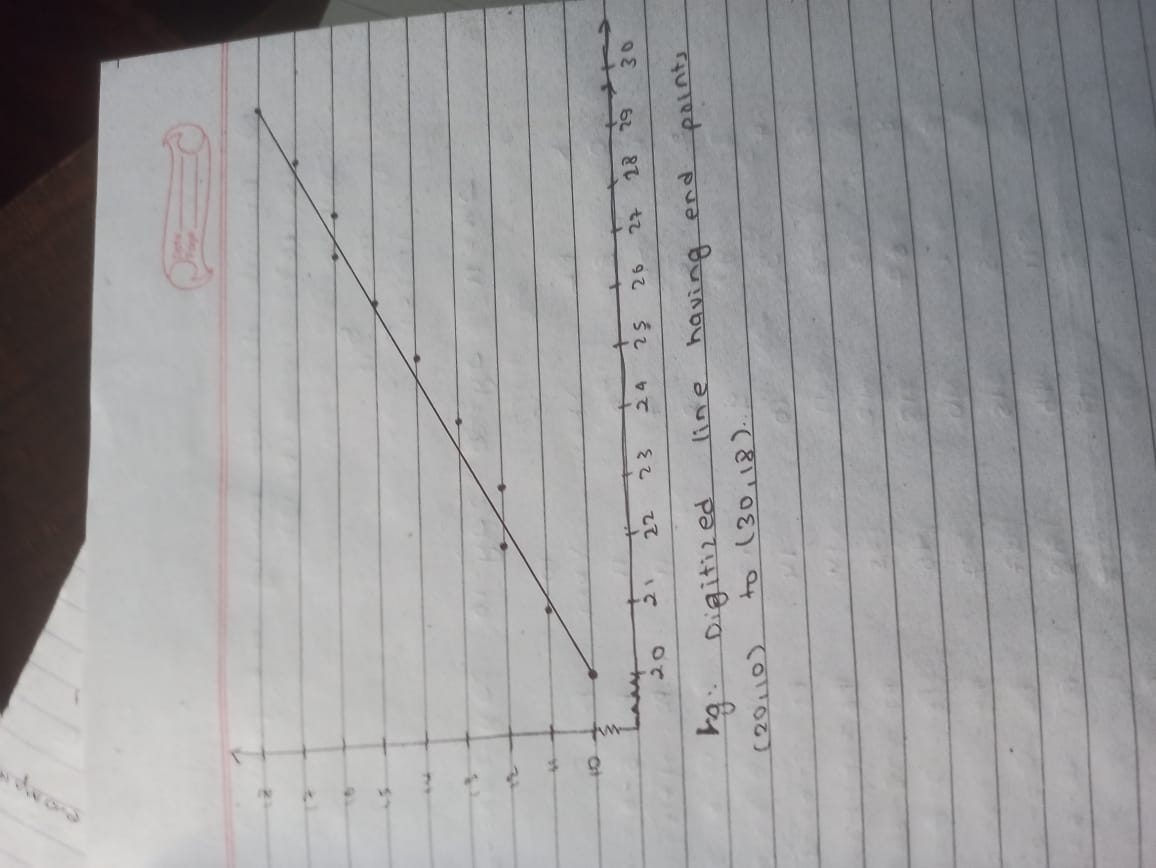 18
17
16
15
14
13
12
11
10
20 21 22 23 24 25 26 27 28 29 30
Fig: Digitized line having end points
(20,10) to (30,18).